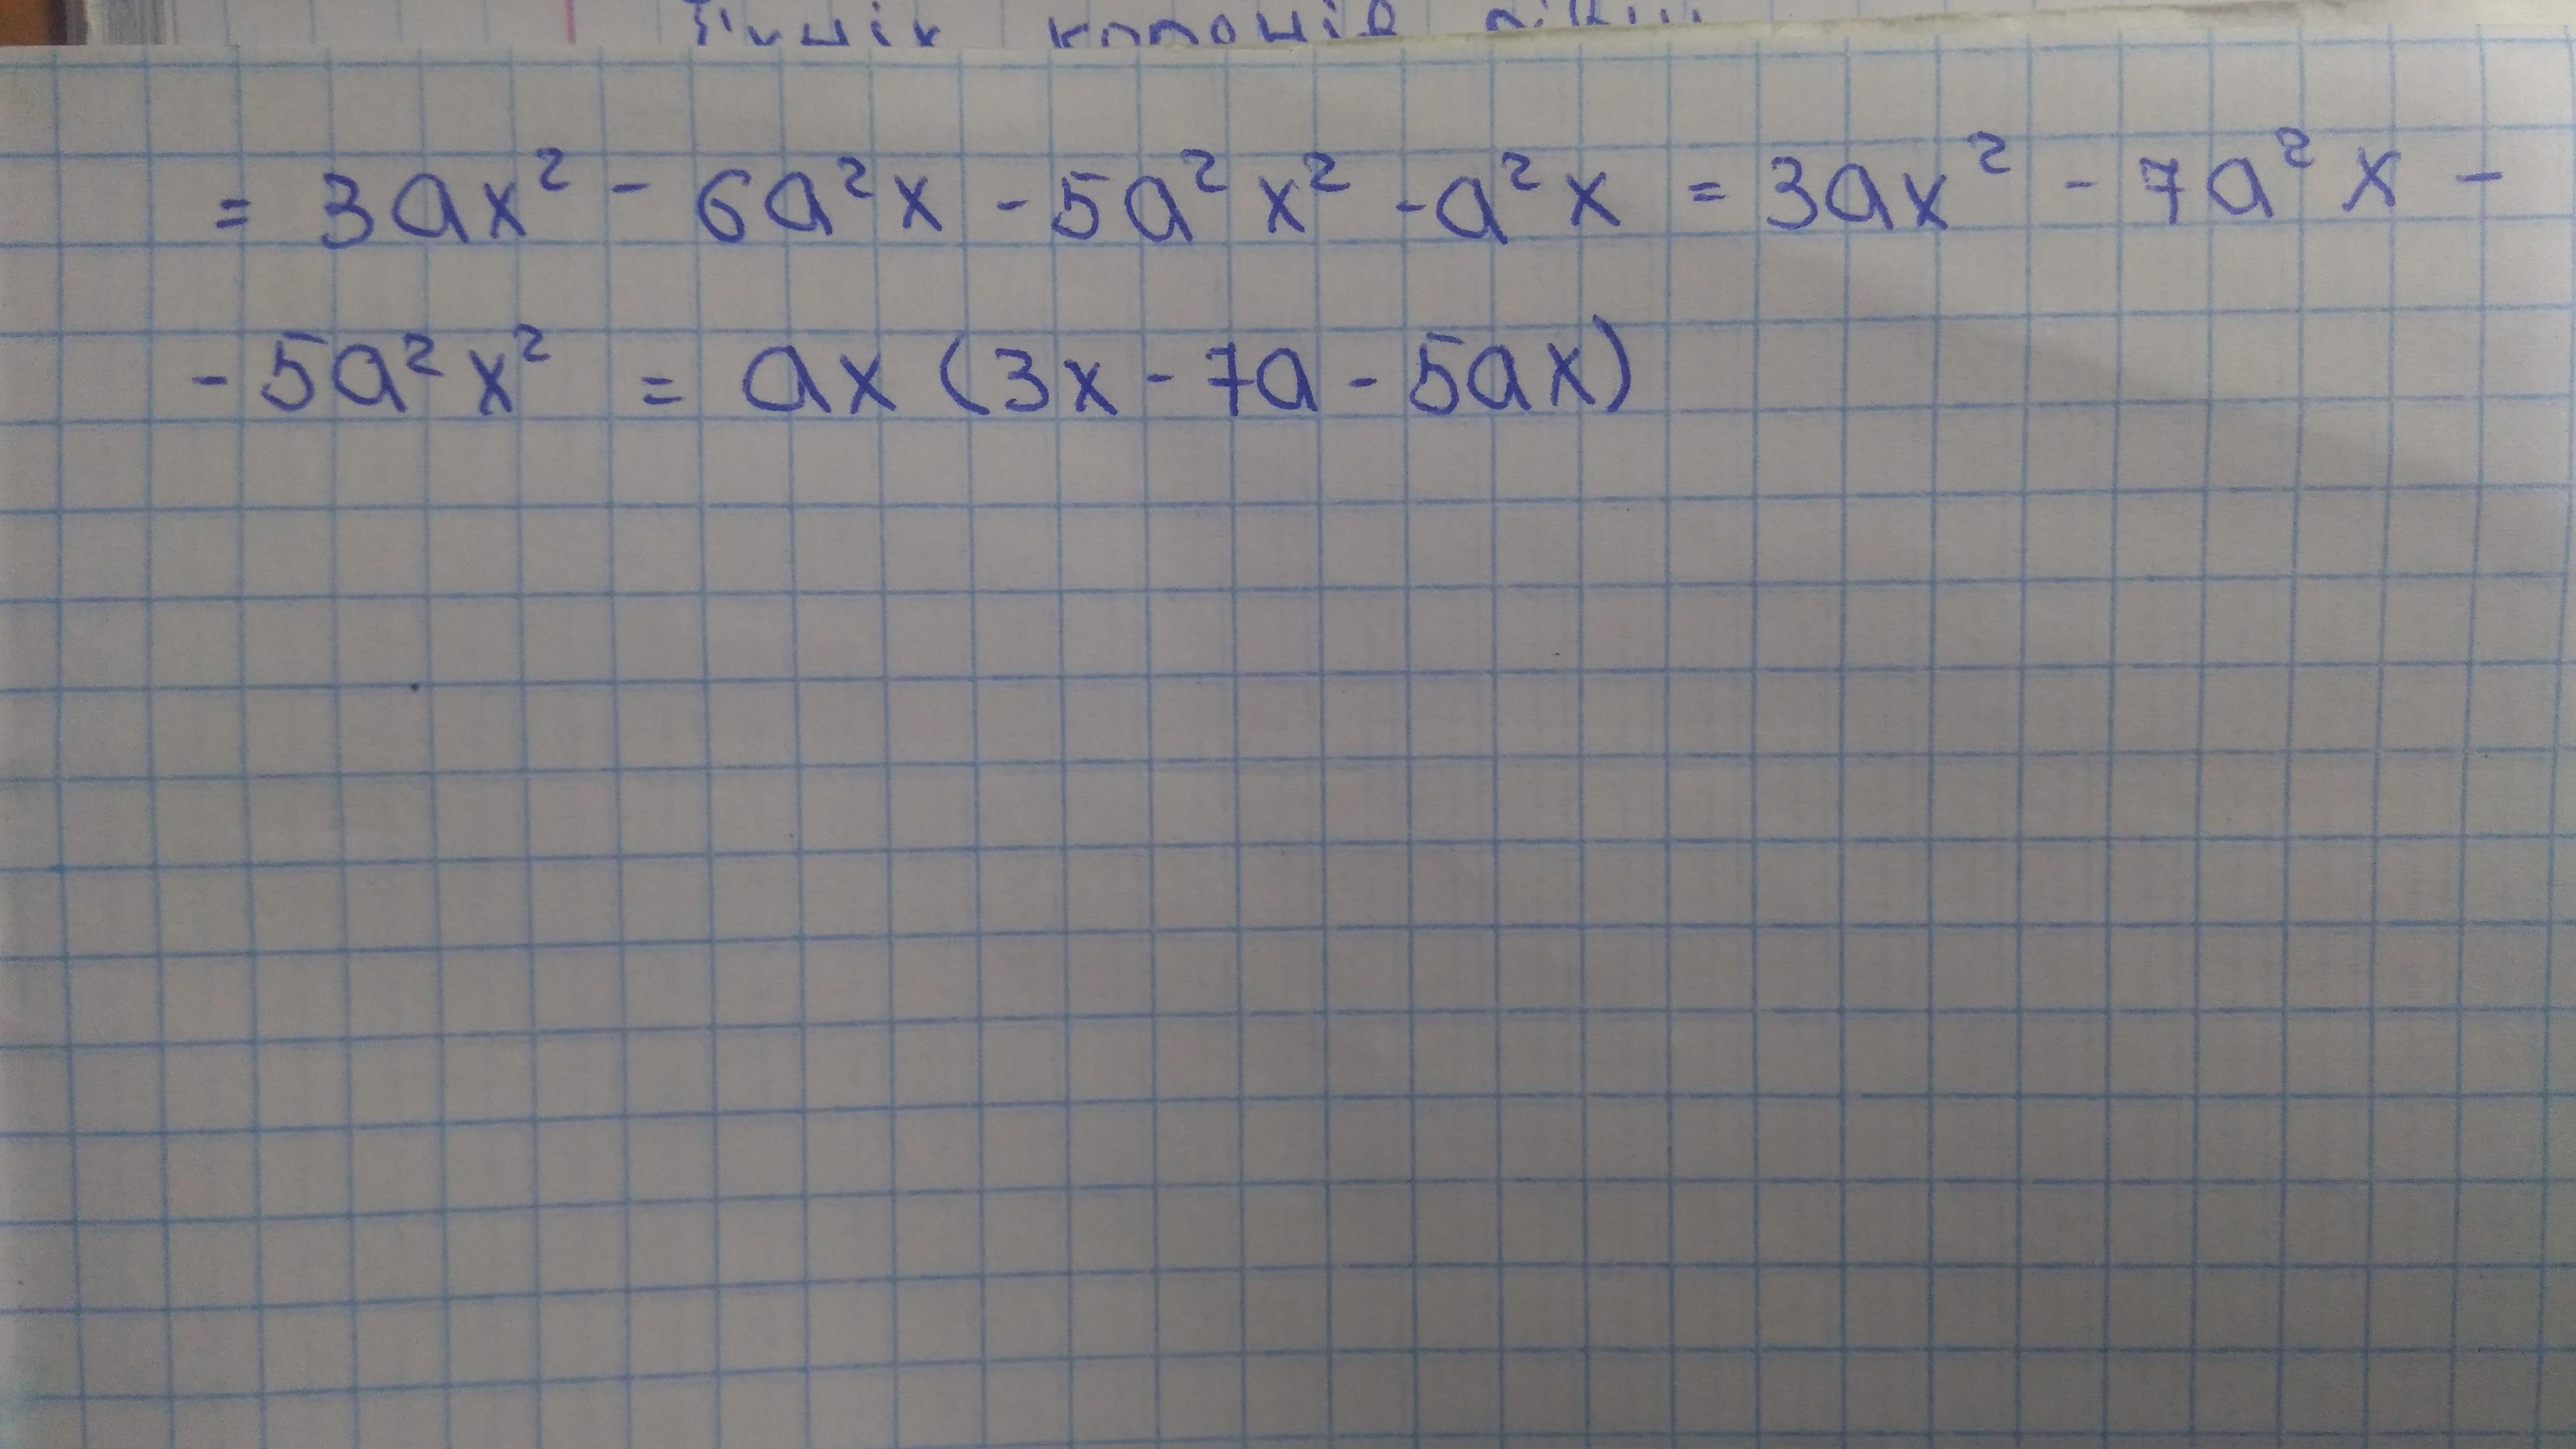 = 3ax² - 6a²x - 5a²x² - a²x = 3ax² - 7a²x -
- 5a²x² = ax (3x - 7a - 5ax)